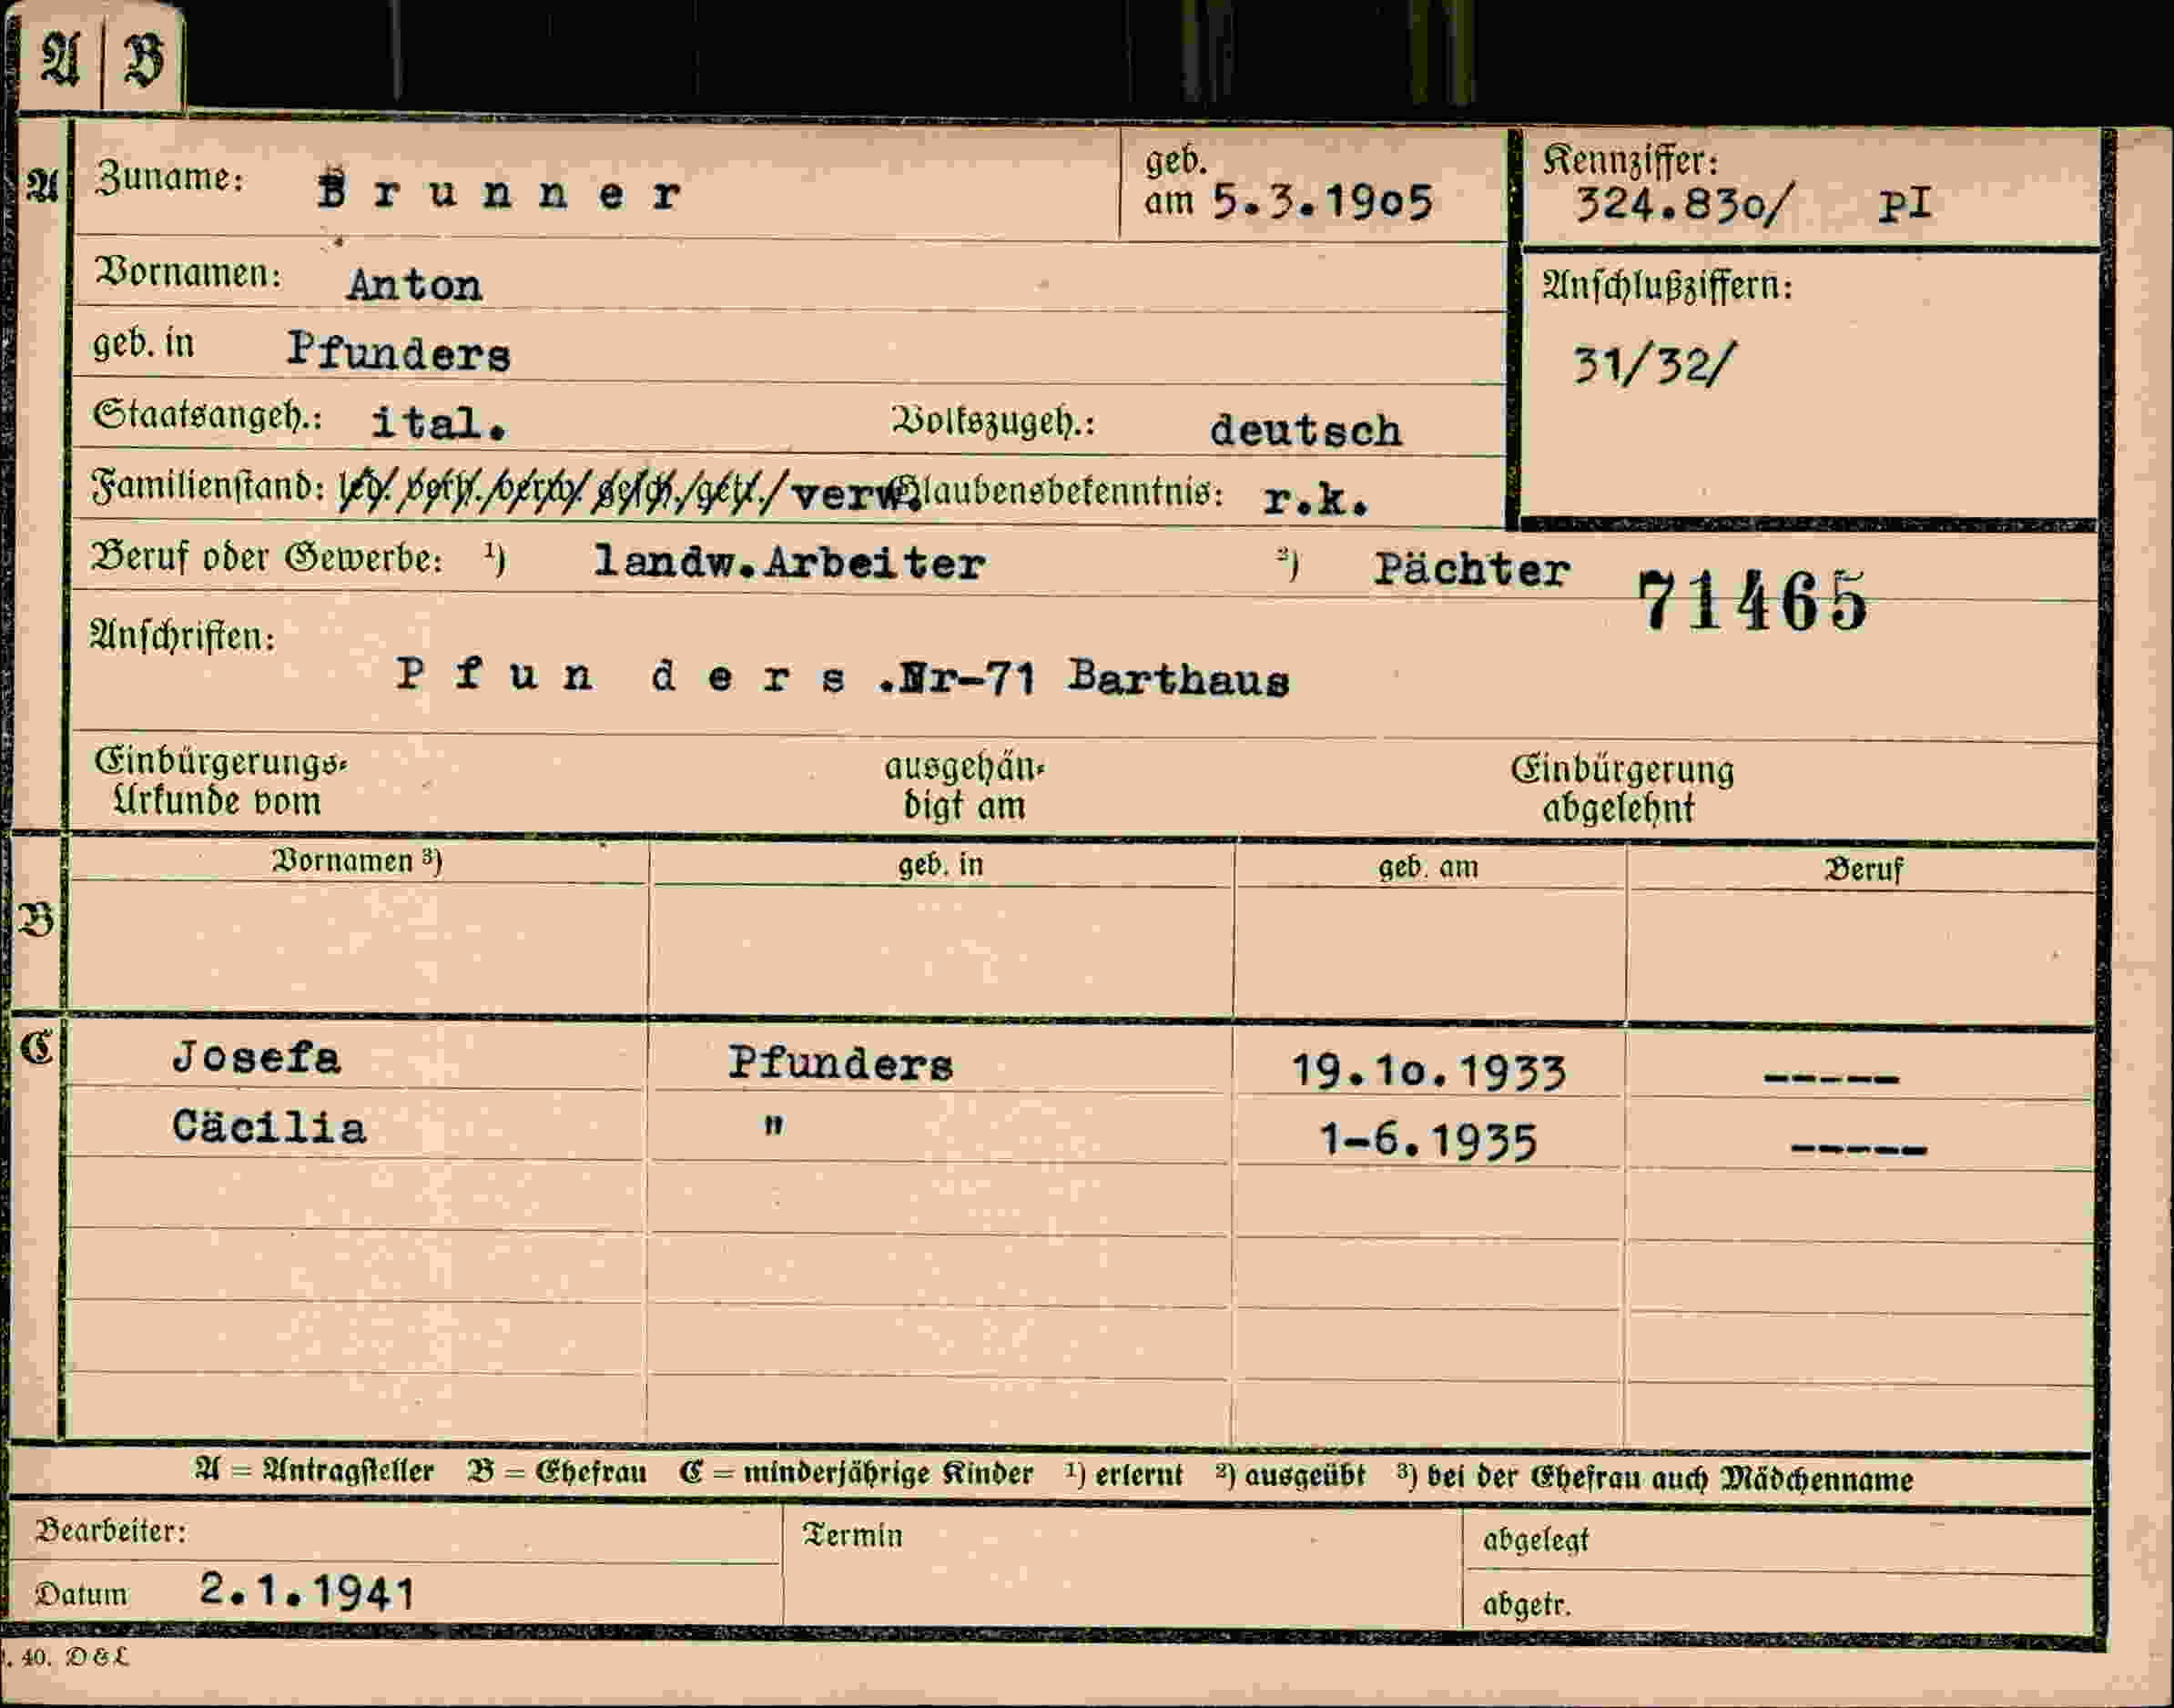 A B
A
Zuname: Brunner
geb. am 5.3.19o5
Kennziffer: 324.83o/ pI
Vornamen: Anton
Anschlußziffern:
31/32/
geb. in Pfunders
Staatsangeh.: ital. Volkszugeh.: deutsch
Familienstand: led./verh./verw./gesch./getr./ verw. Glaubensbekenntnis: r.k.
Beruf oder Gewerbe: ¹) landw.Arbeiter ²) Pächter
71465
Anschriften:
Pfunders.Nr-71 Barthaus
Einbürgerungs-Urkunde vom
ausgehändigt am
Einbürgerung abgelehnt
Vornamen ³) geb. in geb. am Beruf
B
C
Josefa Pfunders 19.1o.1933 -----
Cäcilia " 1-6.1935 -----
A = Antragsteller B = Ehefrau C = minderjährige Kinder ¹) erlernt ²) ausgeübt ³) bei der Ehefrau auch Mädchenname
Bearbeiter:
Termin
abgelegt
Datum 2.1.1941
abgetr.
. 40. D & L